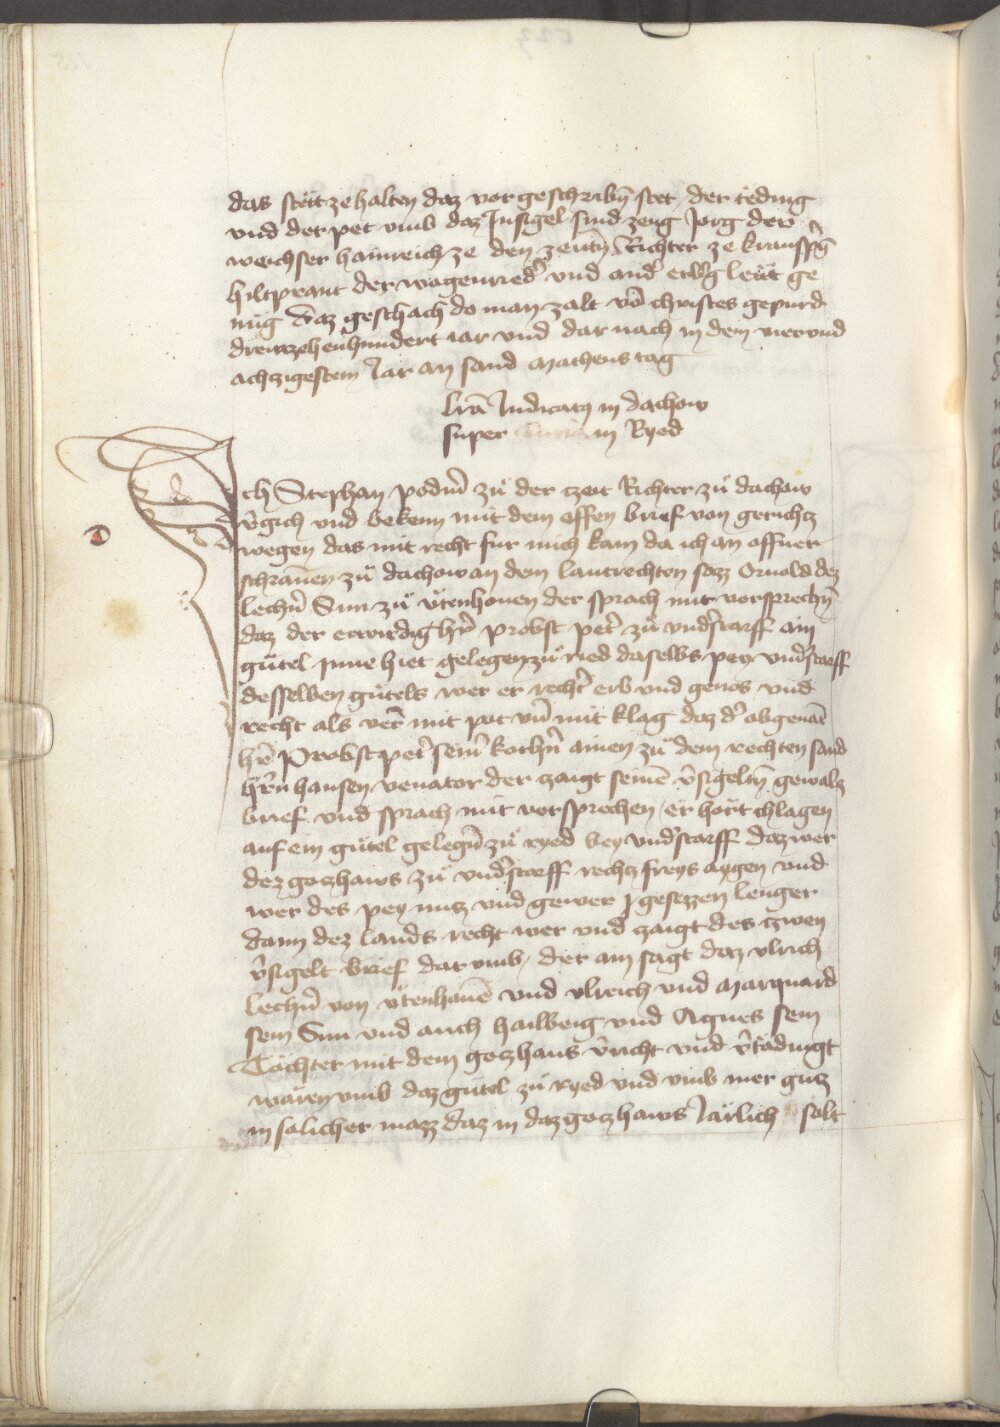 das stett ze halten daz vor geschribn̄ stet der teding
vnd der pet vmb daz Insigel sind zeug Jorg der
weichser hainreich ze den zeitn̄ Richter ze kranspḡ
hiltprant der wagenrieder vnd and̄ erb̄g leut ge
nug daz geschach do man zalt vō christes gepurd
drewtzehenhundert iar vnd dar nach in dem vier vnd
achzigestem Jar an sand Matheus tag
lr̄a Judicatꝫ in dachow
super in Ryed
Ich Stephan podm̄ zů der czeit Richter zů dachow
v̄gich vnd bekenn mit dem offen brief von gerichtz
wegen das mit recht fur mich kam da ich an offner
schrannen zů dachow an dem lantrechten sazz Ornold dez
lechn̄ Sun zů ůtenhouen der sprach mit vorsprechn̄
daz der erwirdig hr̄ probst pet̄ zů vnd̄starff ain
gůtel Inne hiet gelegen zů ried daselbs pey vnd̄starff
desselben gůtels wer er recht̄ erb vnd genos vnd
recht als ver mit pot vn̄ mit klag daz d̄ obgenāt
hr̄ Probst pet̄ sein̄ kochn̄ ainen zů dem rechten sand
hr̄n hansen venator der czaigt seinē v̄sigeltn̄ gewaltz
brief vnd sprach mit vorsprechen er hort chlagen
auf ein gůtel gelegn̄ zů ryed bey vnd̄starff daz wer
dez goczhaws zů vnd̄starff rechtz freys aygen vnd
wer des pey nutz vnd gewer gesezzen lenger
dann dez lands recht wer vnd czaigt des czwen
v̄sigelt brief dar vmb der ain sagt daz vlrich
lechn̄ von ůtenhouē vnd vlreich vnd Marquard
sein Sun vnd auch hailweig vnd Agnes sein
Tochter mit dem goczhaus v̄richt vnd v̄tådingt
wåren vmb daz gůtel zů ryed vnd vmb mer gutz
in solicher mazz daz in daz goczhaws Jårlich solt